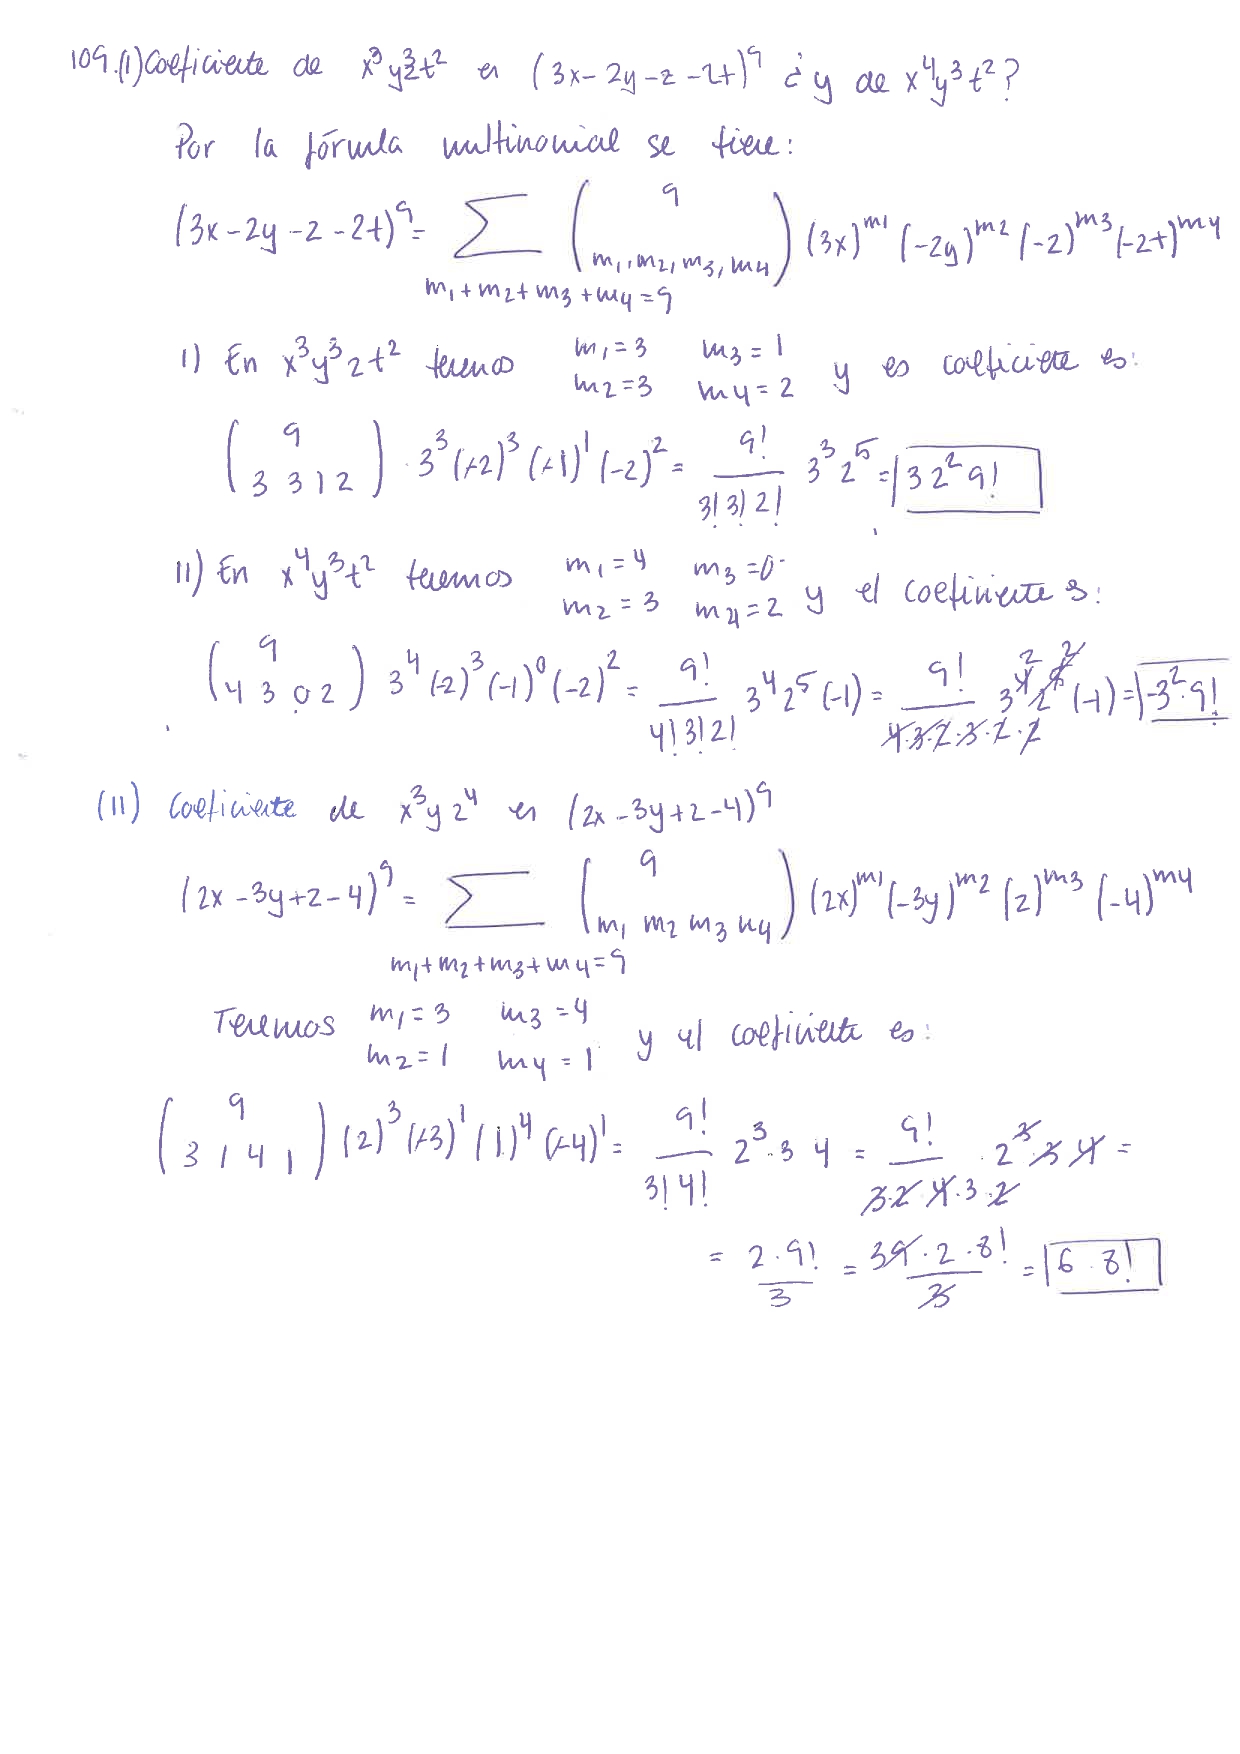 109.(I) Coeficiente de x³y³zt² en (3x - 2y - z - 2t)⁹ ¿y de x⁴y³t²?
Por la fórmula multinomial se tiene:
(3x - 2y - z - 2t)⁹ = ∑_{m₁+m₂+m₃+m₄=9} (9 / m₁, m₂, m₃, m₄) (3x)^m1 (-2y)^m2 (-z)^m3 (-2t)^m4
I) En x³y³zt² tenemos m₁=3 m₃=1 m₂=3 m₄=2 y es coeficiente es:
(9 / 3 3 1 2) · 3³ (-2)³ (-1)¹ (-2)² = 9!/(3! 3! 2!) 3³ 2⁵ = 3 2² 9!
II) En x⁴y³t² tenemos m₁=4 m₃=0 m₂=3 m₄=2 y el coeficiente es:
(9 / 4 3 0 2) 3⁴ (-2)³ (-1)⁰ (-2)² = 9!/(4! 3! 2!) 3⁴ 2⁵ (-1) = 9!/(4·3·2·3·2·2) 3⁴ ² 2⁵ ² (-1) = -3²·9!
(II) Coeficiente de x³yz⁴ en (2x - 3y + z - 4)⁹
(2x - 3y + z - 4)⁹ = ∑_{m₁+m₂+m₃+m₄=9} (9 / m₁ m₂ m₃ m₄) (2x)^m1 (-3y)^m2 (z)^m3 (-4)^m4
Tenemos m₁=3 m₃=4 m₂=1 m₄=1 y el coeficiente es:
(9 / 3 1 4 1) (2)³ (-3)¹ (1)⁴ (-4)¹ = 9!/(3! 4!) 2³·3 4 = 9!/(3·2 4·3·2) 2³ 3 4 =
= 2·9!/3 = 39·2·8!/3 = 6·8!